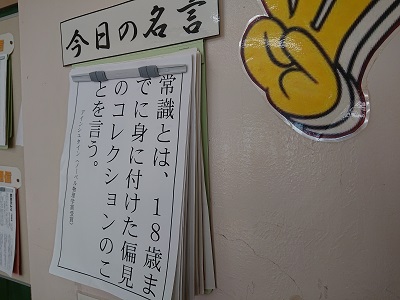 今日の名言
常識とは、18歳ま
でに身に付けた偏見
のコレクションのこ
とを言う。
アインシュタイン(ノーベル物理学賞受賞)